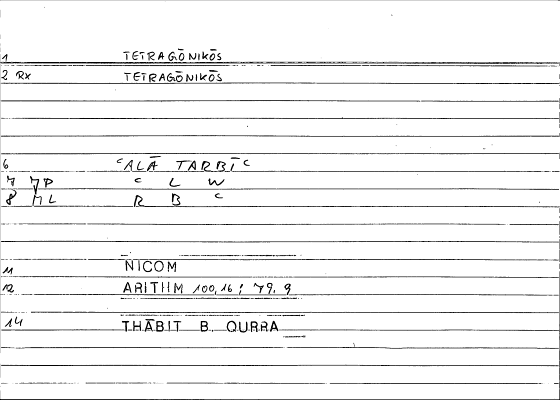 1 TETRAGŌNIKŌS
2 RX TETRAGŌNIKŌS
6 ʿALĀ TARBĪʿ
7 JP ʿ L W
8 ML R B ʿ
11 NICOM
12 ARITHM 100,16; 79,9
14 THĀBIT B. QURRA